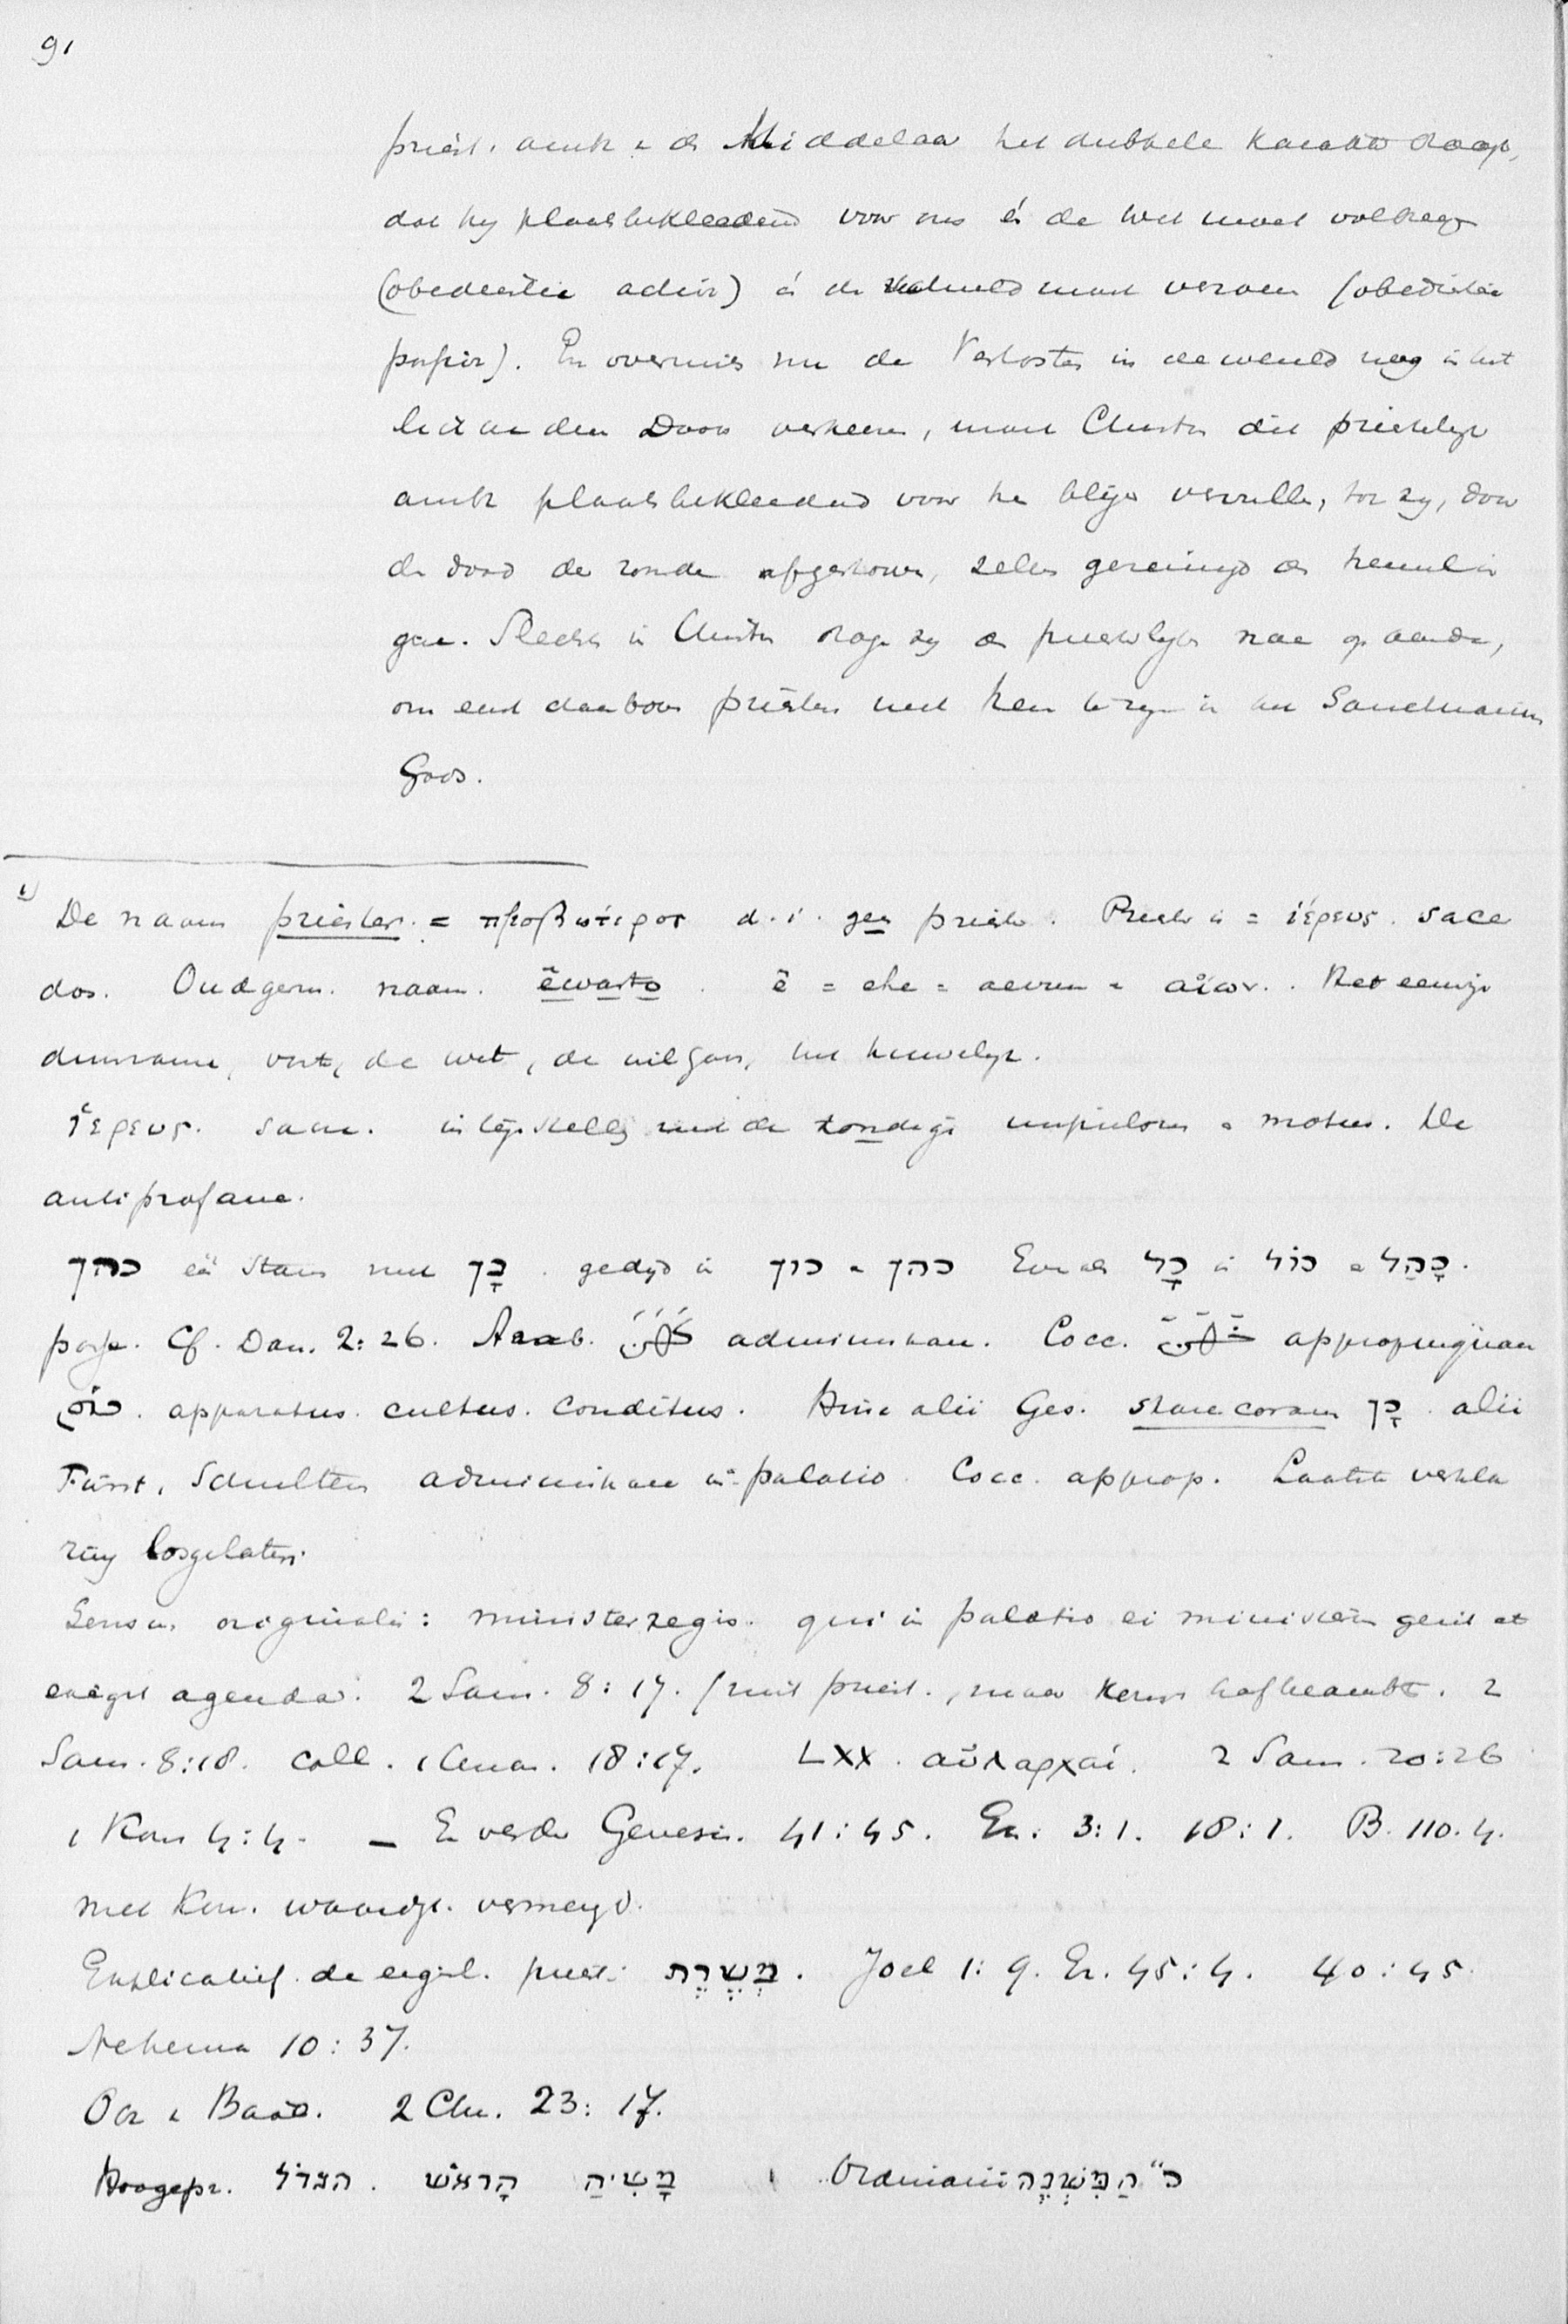 91
priest. ambt v. d. Middelaar het dubbele karakter draagt,
dat hy plaatsbekleedend voor ons én de wet moet volbrengen
(obedientia activa) én de schuld moet verzoen (obedientia
passiva). En overmits nu de Verlosten in de wereld nog in het
lichaam den Doods verkeeren, moet Christus dit priesterlijk
ambt plaatsbekleedend voor hen blijven vervullen, tot zy, door
de dood de zonde afgestorven, zelven gereinigd den hemel in
gaan. Slechts in Christus dragen zy den priesterlijken naam op aarde,
om eens daarboven priesters met Hem te zijn in het Sanctuarium
Gods.
1) De naam priester = πρεσβύτερος d. i. geen priester. Priester is = ἱέρευς. sacer
dos. Oudgerm. naam. êwarto. ê = ehe = aevum = αἰων. Het eeuwige
duurzame, vast, de wet, de religion, het huwelijk.
ἱέρευς. sacer. in tegenstelling met de zondige impulsen = motus. De
antiprofane.
כהן één stam met כָּן. gedijd in כון = כהן Evenals כָּל in כול = כָּהַל.
pass. Cf. Dan. 2:26. Arab. كَهَنَ administrare. Cocc. appropinquare
apparatus. cultus. conditus. Hinc alii Ges. stare coram כָּן. alii
Fürst, Schultens administrare in palatio. Cocc. approp. Laatste verkla
ring losgelaten.
Sensus originalis: minister regis. qui in palatio ei ministerium gerit et
exegit agenda. 2 Sam. 8:17. (niet priest., maar Kerns hofbeambte. 2
Sam. 8:18. coll. 1 Chron. 18:17. LXX. αὐλαρχαί. 2 Sam. 20:26
1 Kon 4:4. – En verder Genesis. 41:45. Ex. 3:1. 18:1. Ps. 110.4.
met Kon. waardigh. vermengd.
Explicatief de eigenl. priest: מְשָׁרֵת. Joel 1:9. Ez. 45:4. 40:45.
Nehemia 10:37.
Ook v. Baäls. 2 Chr. 23:17.
Hoogepr. הגדול. הָראשׁ מָשִׁיהַ Ordinarii כ״ הַמִּשְׁנֶה